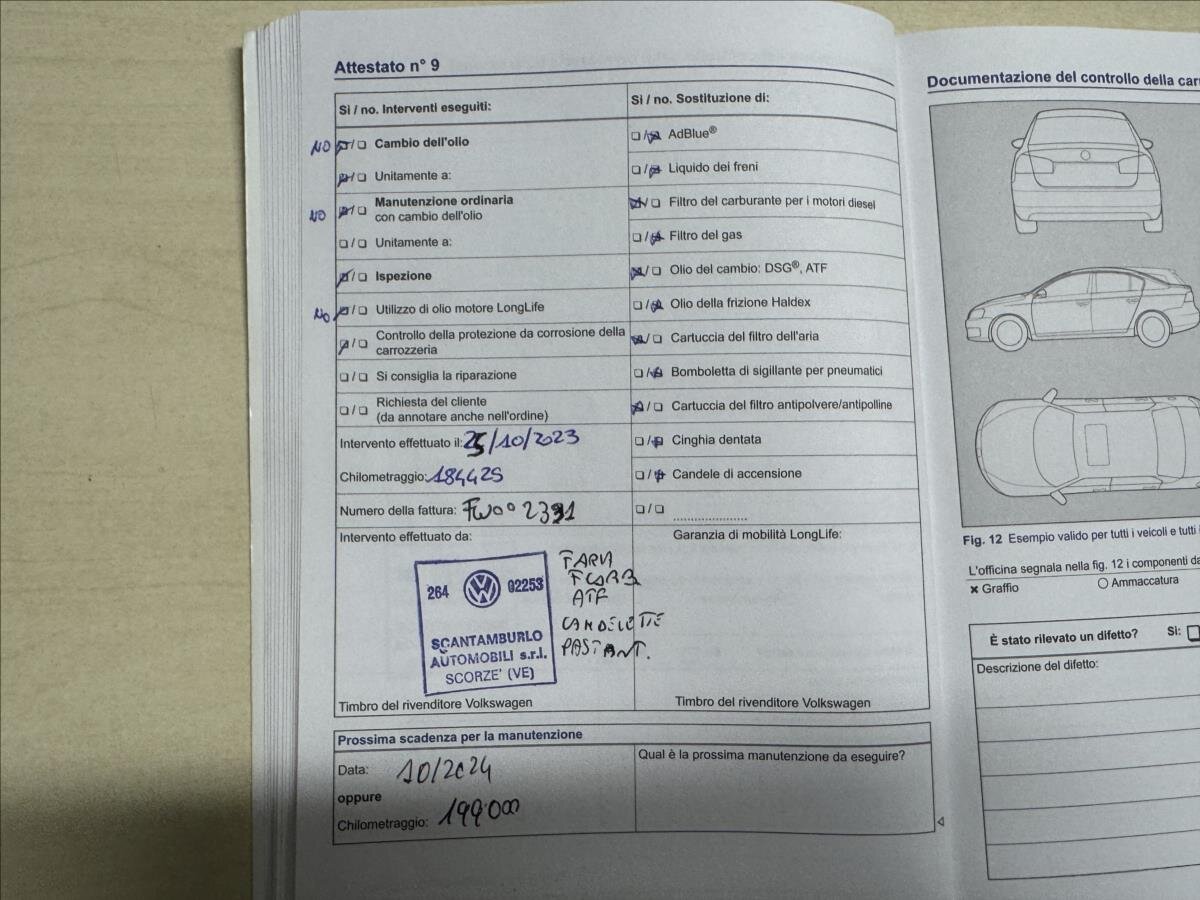 Attestato n° 9
Sì / no. Interventi eseguiti:
NO ☒/❏ Cambio dell'olio
☒/❏ Unitamente a:
NO ☒/❏ Manutenzione ordinaria
con cambio dell'olio
❏/❏ Unitamente a:
☒/❏ Ispezione
No ☒/❏ Utilizzo di olio motore LongLife
☒/❏ Controllo della protezione da corrosione della
carrozzeria
❏/❏ Si consiglia la riparazione
❏/❏ Richiesta del cliente
(da annotare anche nell'ordine)
Intervento effettuato il: 25/10/2023
Chilometraggio: 184425
Numero della fattura:
Intervento effettuato da:
264 VW 02253
SCANTAMBURLO
AUTOMOBILI s.r.l.
SCORZE' (VE)
FARIA
ATF
CANDELETTE
PAST ANT.
Timbro del rivenditore Volkswagen
Sì / no. Sostituzione di:
❏/☒ AdBlue®
❏/☒ Liquido dei freni
☒/❏ Filtro del carburante per i motori diesel
❏/☒ Filtro del gas
☒/❏ Olio del cambio: DSG®, ATF
❏/☒ Olio della frizione Haldex
☒/❏ Cartuccia del filtro dell'aria
❏/☒ Bomboletta di sigillante per pneumatici
☒/❏ Cartuccia del filtro antipolvere/antipolline
❏/☒ Cinghia dentata
❏/☒ Candele di accensione
❏/❏ .....................
Garanzia di mobilità LongLife:
Timbro del rivenditore Volkswagen
Prossima scadenza per la manutenzione
Data: 10/2024
oppure
Chilometraggio: 199.000
Qual è la prossima manutenzione da eseguire?
Documentazione del controllo della car
Fig. 12 Esempio valido per tutti i veicoli e tutti
L'officina segnala nella fig. 12 i componenti da
✖ Graffio
○ Ammaccatura
È stato rilevato un difetto? Sì: ❏
Descrizione del difetto: